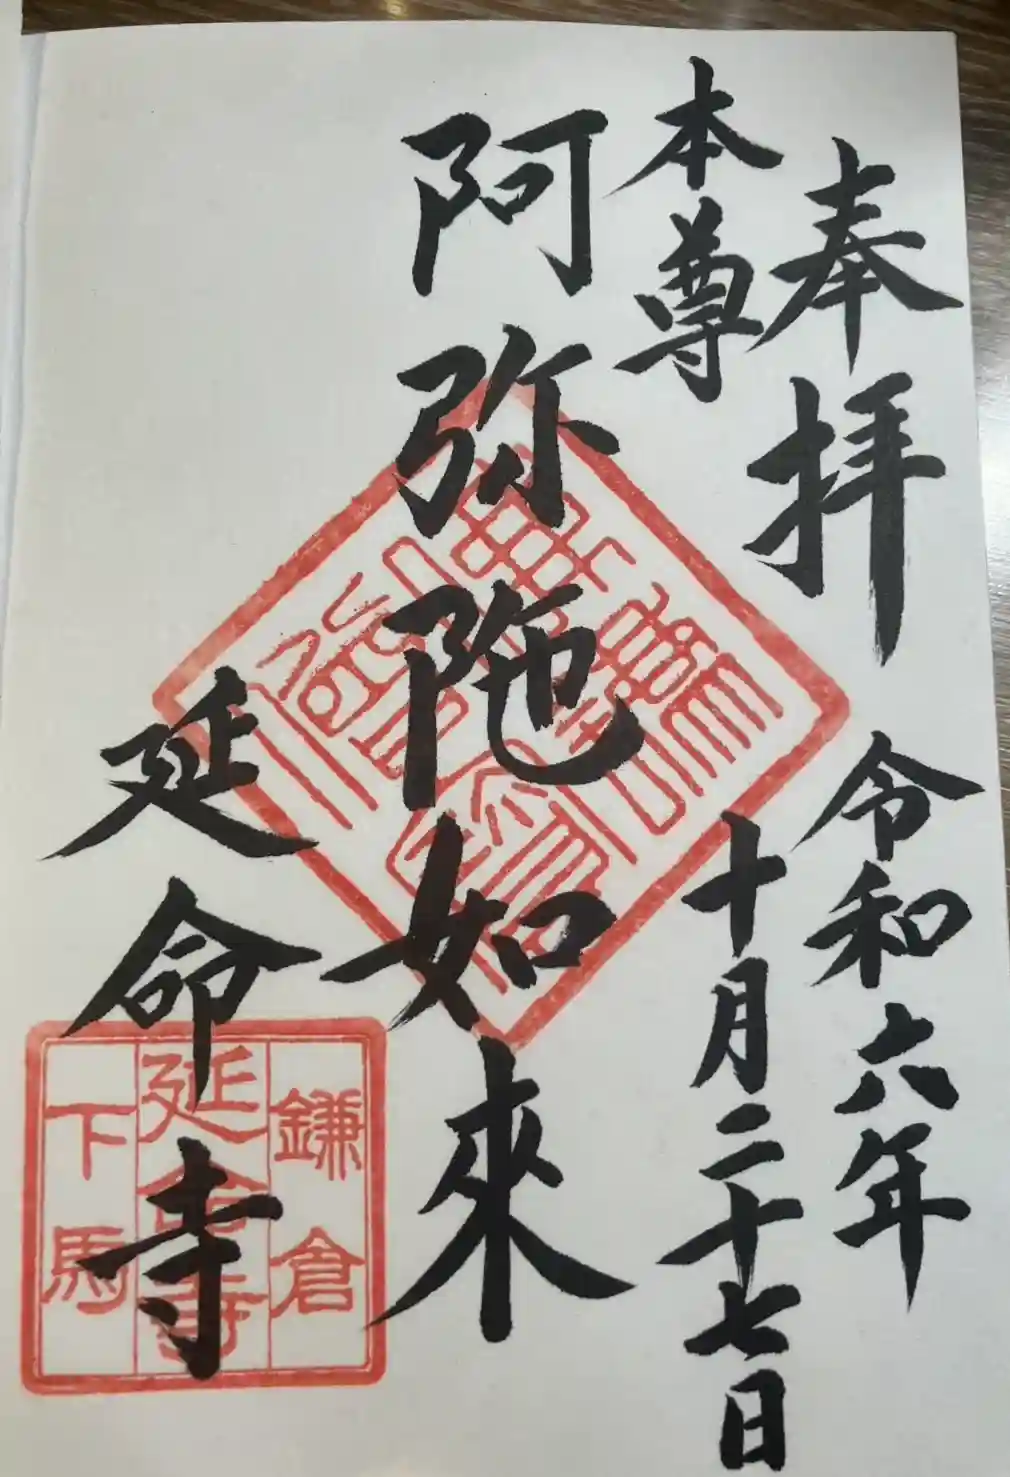 奉拝
令和六年
十月二十七日
本尊
阿弥陀如來
延命寺
鎌倉
延命寺
下馬